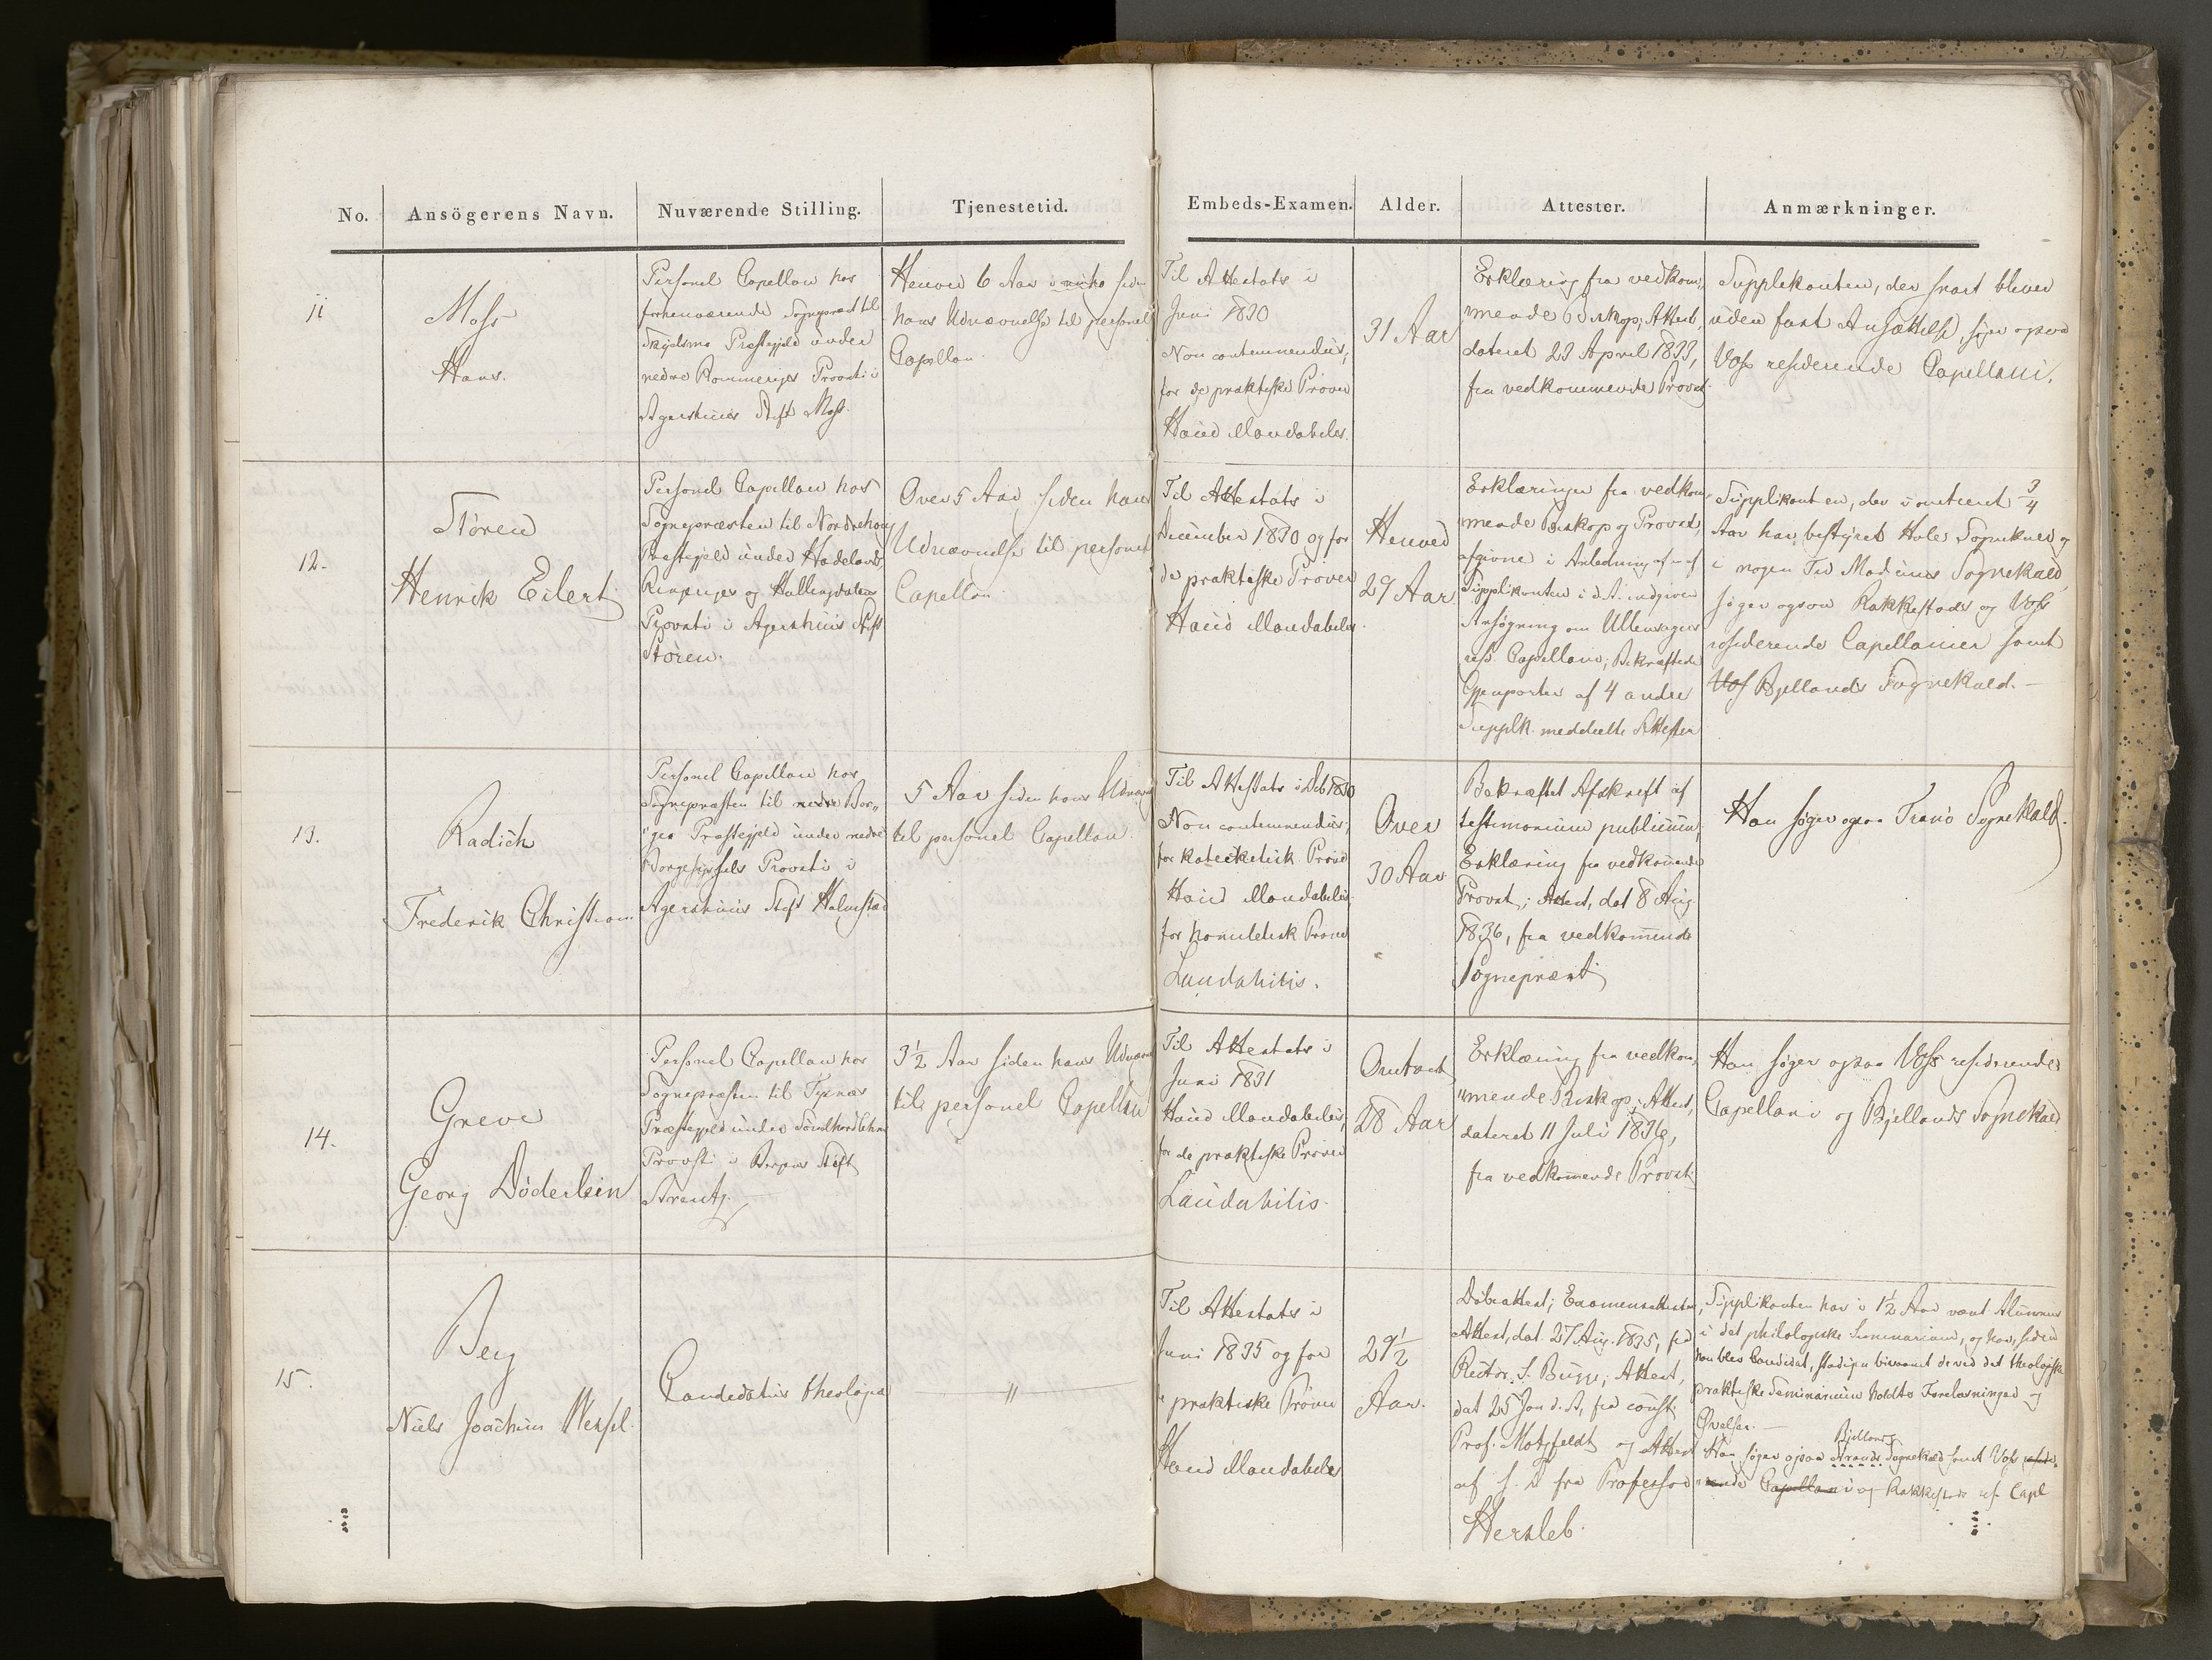 No. Ansögerens Navn. Nuværende Stilling. Tjenestetid. Embeds-Examen. Alder. Attester. Anmærkninger.
11
Moss
Hans.
Personel Capellan hos
forhenværende Sognepræst til
Præstegjeld under
nedre Rommeriges Provsti i
Agershuus Stift Moss.
Henved 6 Aar siden
hans Udnævnelse til personel
Capellan.
Til Attestats i
Juni 1830
Non contemnendus,
for de praktiske Prøver
Haud illaudabilis.
31 Aar
Erklæring fra vedkom„
mende Biskop; Attest,
dateret 23 April 1833,
fra vedkommende Provst.
Supplikanten, der snart bliver
uden fast Ansættelse, søger ogsaa
Voss residerende Capellani.
12.
Støren
Henrik Eilert
Personel Capellan hos
Sognepræsten til Nordrehoug
Præstegjeld under Hadelands,
Ringeriges og Hallingdalens
Provsti i Agershuus Stift
Støren.
Over 5 Aar, siden hans
Udnævnelse til personel
Capellan.
Til Attestats i
December 1830 og for
de praktiske Prøver
Haud illaudabilis.
Henved
29 Aar
Erklæringer fra vedkom„
mende Biskop og Provst,
afgivne i Anledning af en af
Supplikanten i d. A. indgiven
Ansøgning om Ullensagers
res. Capellani; Bekræftede
Gjenparter af 4 andre
Supplk. meddeelte Attester
Supplikanten, der i omtrent 3/4
Aar har bestyret Hole Sognekald og
i nogen Tid Modums Sognekald,
søger ogsaa Rakkestads og Voss
residerende Capellanier samt
Voss Bjellands Sognekald. —
13.
Radich
Frederik Christian
Personel Capellan hos
Sognepræsten til nedre Bor„
„ges Præstegjeld under nedre
Borgesyssels Provsti i
Agershuus Stift Halmstad
5 Aar siden hans Udnævn
til personel Capellan.
Til Attestats i Deb 1830
Non contemnendus;
for katechetisk Prøve
Haud illaudabilis
for homiletisk Prøve
Laudabilis.
Over
30 Aar
Bekræftet Afskrift af
testimonium publicum;
Erklæring fra vedkommende
Provst; Attest, dat 8 Aug.
1836, fra vedkommende
Sognepræst
Han søger ogsaa Tranø Sognekald.
14.
Greve
Georg Døderlein
Personel Capellan hos
Sognepræsten til Tysnæs
Præstegjeld under Søndhordlehns
Provsti i Bergens Stift
Arentz.
3½ Aar siden hans Udnævn
til personel Capellan
Til Attestats i
Juni 1831
Haud illaudabilis,
for de praktiske Prøver
Laudabilis.
Omtrent
28 Aar
Erklæring fra vedkom„
„mende Biskop; Attest,
dateret 11 Juli 1836,
fra vedkommende Provst.
Han søger ogsaa Voss residerende
Capellani og Bjellands Sognekald
15.
Berg
Niels Joachim Wessel.
Candidatus theologiæ
"
Til Attestats i
Juni 1835 og for
de praktiske Prøver
Haud illaudabilis
29½
Aar.
Døbeattest; Examensattester,
Attest, dat. 27 Aug. 1835, fra
Rector S. Bugge; Attest,
dat 25 Jan d. A, fra const.
Prof. Motzfeldt og Attest
af s. D fra Professor
Hersleb.
Supplikanten har i 1½ Aar været Alumnus
i det philologiske Seminarium, og har, siden
han blev Candidat, stadigen bivaanet de ved det theologiske
praktiske Seminarium holdte Forelæsninger og
Øvelser. —
Bjellands
Han søger ogsaa Strands Sognekald samt Voss reside„
„rende Capellani og Rakkestads res. Capl